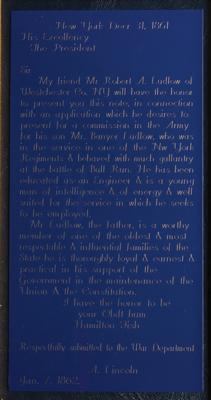 New York Decr 31, 1861
His Excellency
The President
Sir
My friend Mr Robert A. Ludlow of
Westchester Co. NY will have the honor
to present you this note, in connection
with an application which he desires to
present for a commission in the Army
for his son Mr. Banyer Ludlow, who was
in the service in one of the New York
Regiments & behaved with much gallantry
at the battle of Bull Run. He has been
educated as an Engineer & is a young
man of intelligence & of energy & well
suited for the service in which he seeks
to be employed.
Mr Ludlow, the father, is a worthy
member of one of the oldest & most
respectable & influential families of the
State he is thoroughly loyal & earnest &
practical in his support of the
Government in the maintenance of the
Union & the Constitution.
I have the honor to be
your Obdt
Hamilton Fish
Respectfully submitted to the War Department
A. Lincoln
Jan. 7. 1862.